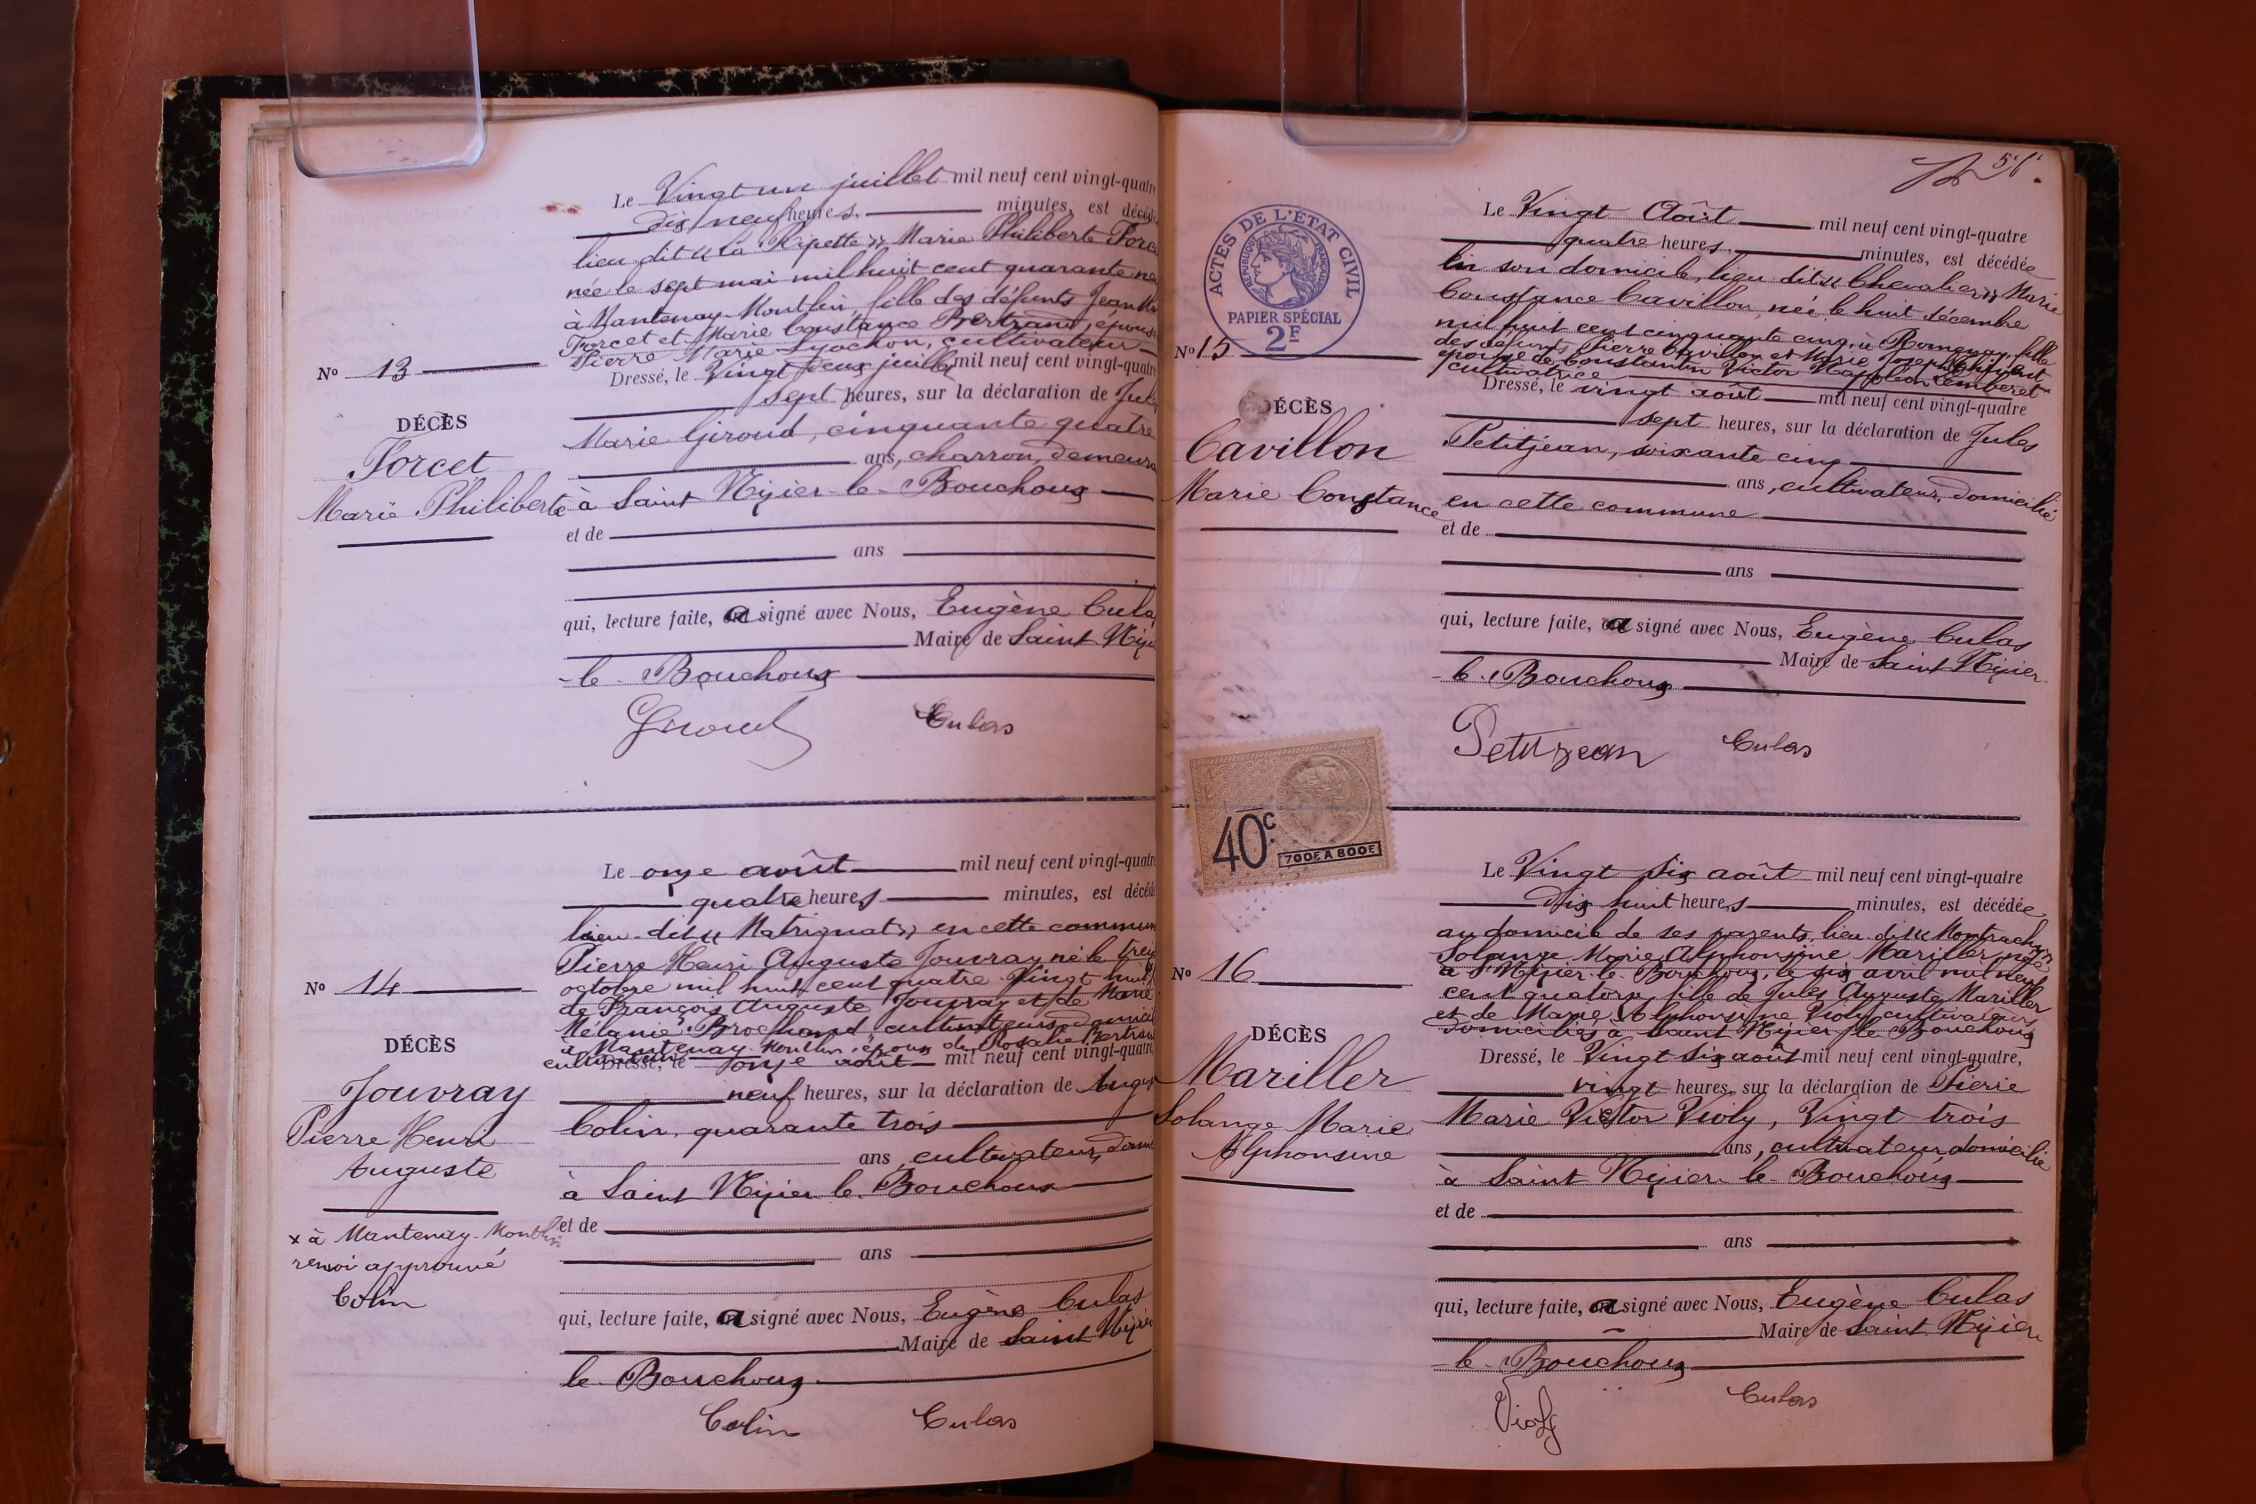 Le Vingt un juillet mil neuf cent vingt-quatre
dix neuf heures, minutes, est décédée
lieu dit « La Ripette », Marie Philiberte Forcet
née le sept mai mil huit cent quarante
à Mantenay-Montlin, fille des défunts Jean
Forcet et Marie Constance Bertrand, épouse
Pierre Marie cultivateur
Nº 13
DÉCÈS
Forcet
Marie Philiberte
Dressé, le Vingt deux juillet mil neuf cent vingt-quatre
sept heures, sur la déclaration de Jules
Marie Giroud, cinquante quatre
ans, charron, demeurant
à Saint Nizier-le-Bouchoux
et de
ans
qui, lecture faite, a signé avec Nous, Eugène Culas
Maire de Saint Nizier
-le-Bouchoux
Giroud Culas
Le onze août mil neuf cent vingt-quatre
quatre heures minutes, est décédé
lieu dit « Matrignat » en cette commune
Pierre Henri Auguste Jouvray né le treize
octobre mil huit cent quatre vingt huit
de François Auguste Jouvray et de Marie
Mélanie Brochand, cultivateurs, domiciliés
à Mantenay-Montlin, époux de Rosalie Bertrand
cultivateur
Nº 14
DÉCÈS
Jouvray
Pierre Henri
Auguste
x à Mantenay-Montlin
renvoi approuvé
Colin
Dressé, le onze août mil neuf cent vingt-quatre,
neuf heures, sur la déclaration de Auguste
Colin, quarante trois
ans, cultivateur, dom
à Saint Nizier le-Bouchoux
et de
ans
qui, lecture faite, a signé avec Nous, Eugène Culas
Maire de Saint Nizier
le-Bouchoux
Colin Culas
ACTES DE L'ÉTAT CIVIL
RÉPUBLIQUE FRANÇAISE
PAPIER SPÉCIAL
2F
Le Vingt Août mil neuf cent vingt-quatre
quatre heures, minutes, est décédée
En son domicile, lieu dit « Chevalier » Marie
Constance Cavillon, née le huit décembre
mil huit cent cinquante cinq, à Romenay, fille
des défunts Pierre Cavillon et Marie Josephte
épouse de Constantin Victor Napoléon Cemberet
cultivatrice
Nº 15
DÉCÈS
Cavillon
Marie Constance
Dressé, le vingt août mil neuf cent vingt-quatre
sept heures, sur la déclaration de Jules
Petitjean, soixante cinq
ans, cultivateur, domicilié
en cette commune
et de
ans
qui, lecture faite, a signé avec Nous, Eugène Culas
Maire de Saint Nizier
-le-Bouchoux
Petitjean Culas
40c.
700F A 800F
Le Vingt Six août mil neuf cent vingt-quatre
dix huit heures minutes, est décédée
au domicile de ses parents, lieu dit «
Solange Marie Alphonsine Mariller née
à St Nizier-le-Bouchoux, le six avril mil neuf
cent quatorze, fille de Jules Auguste Mariller
et de Marie Alphonsine Violy, cultivateurs
domiciliés à Saint Nizier-le-Bouchoux
Nº 16
DÉCÈS
Mariller
Solange Marie
Alphonsine
Dressé, le Vingt six août mil neuf cent vingt-quatre,
vingt heures, sur la déclaration de Pierre
Marie Victor Violy, Vingt trois
ans, cultivateur, domicilié
à Saint Nizier le-Bouchoux
et de
ans
qui, lecture faite, a signé avec Nous, Eugène Culas
Maire de Saint Nizier
-le-Bouchoux
Violy Culas